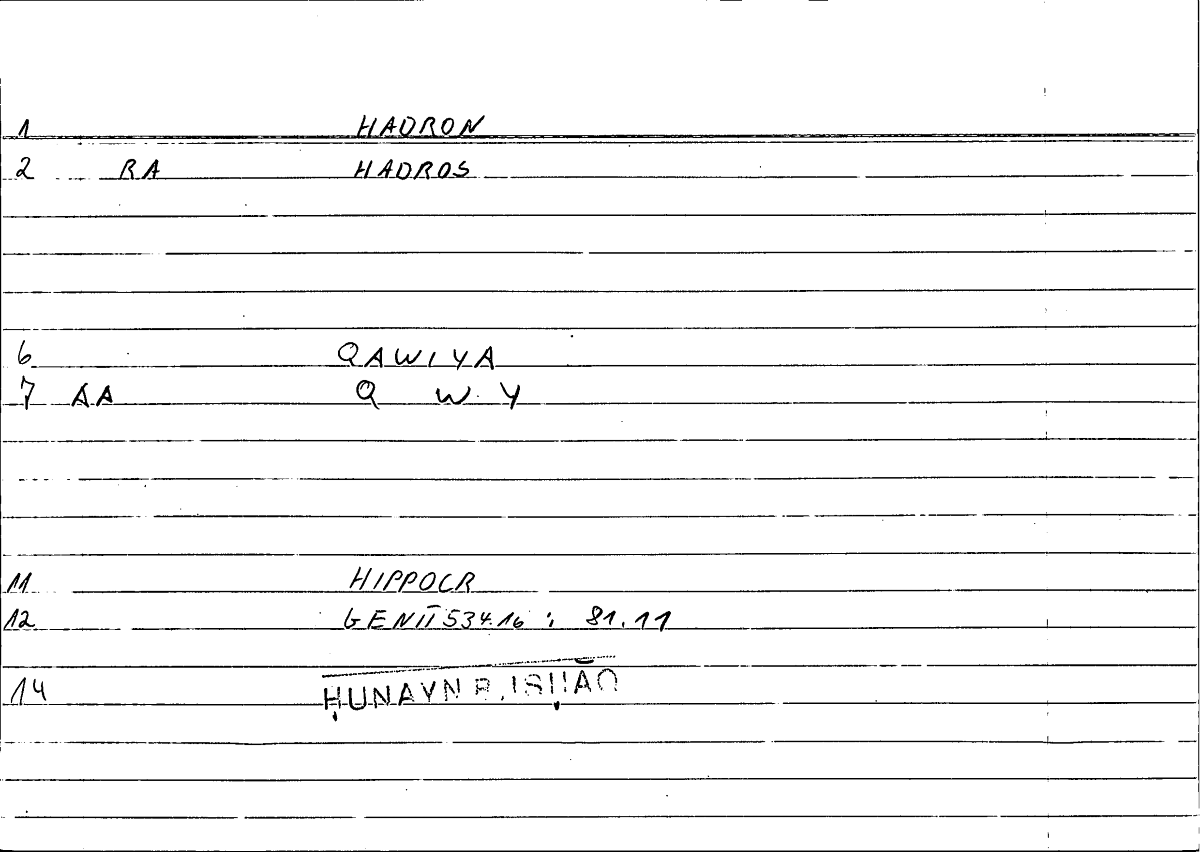 1 HADRON
2 RA HADROS
6 QAWIYA
7 AA Q W Y
11 HIPPOCR
12 GENII 534.16 : 81.11
14 ḤUNAYN B. ISḤĀQ